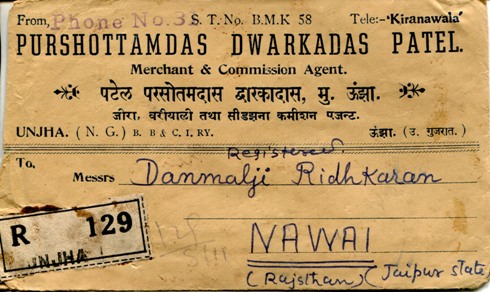 From, Phone No. 3 S. T. No. B.M.K 58 Tele:-'Kiranawala'
PURSHOTTAMDAS DWARKADAS PATEL.
Merchant & Commission Agent.
पटेल परसोतमदास द्वारकादास, मु. ऊंझा.
जीरा, वरीयाली तथा सीडझना कमीशन एजन्ट.
UNJHA. (N. G.) B. B & C. I. RY. ऊंझा. (उ. गुजरात.)
Registered
To,
Messrs Danmalji Ridhkaran
R 129
UNJHA
NAWAI
(Rajsthan) (Jaipur state)